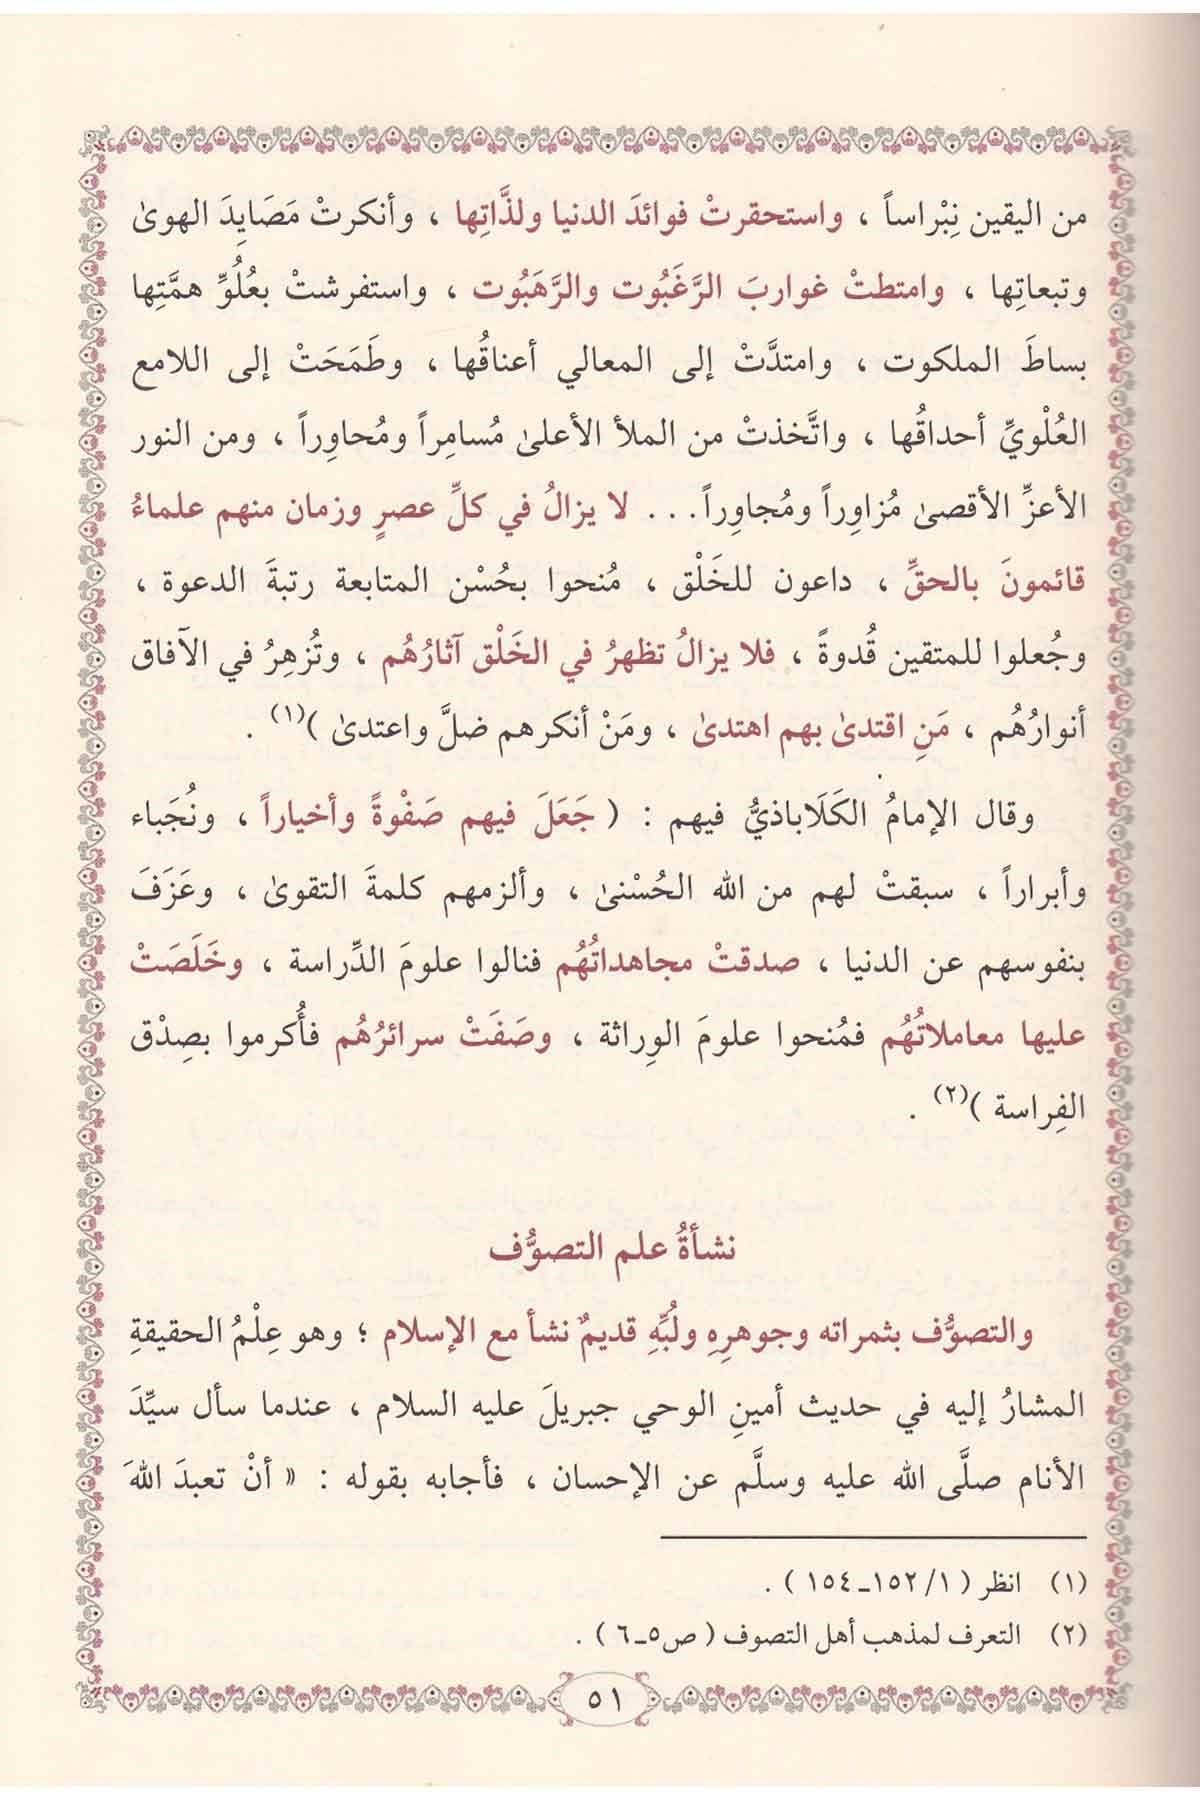 من اليقين نِبْراساً ، واستحقرتْ فوائدَ الدنيا ولذَّاتِها ، وأنكرتْ مَصَايِدَ الهوىٰ
وتبعاتِها ، وامتطتْ غواربَ الرَّغَبُوت والرَّهَبُوت ، واستفرشتْ بعُلُوِّ همَّتِها
بساطَ الملكوت ، وامتدَّتْ إلى المعالي أعناقُها ، وطَمَحَتْ إلى اللامع
العُلْويِّ أحداقُها ، واتَّخذتْ من الملأ الأعلىٰ مُسامِراً ومُحاوِراً ، ومن النور
الأعزِّ الأقصىٰ مُزاوِراً ومُجاوِراً... لا يزالُ في كلِّ عصرٍ وزمان منهم علماءُ
قائمونَ بالحقِّ ، داعون للخَلْق ، مُنحوا بحُسْن المتابعة رتبةَ الدعوة ،
وجُعلوا للمتقين قُدوةً ، فلا يزالُ تظهرُ في الخَلْق آثارُهُم ، وتُزهِرُ في الآفاق
أنوارُهُم ، مَنِ اقتدىٰ بهم اهتدىٰ ، ومَنْ أنكرهم ضلَّ واعتدىٰ )(١) .
وقال الإمامُ الكَلَاباذيُّ فيهم : ( جَعَلَ فيهم صَفْوةً وأخياراً ، ونُجَباء
وأبراراً ، سبقتْ لهم من الله الحُسْنىٰ ، وألزمهم كلمةَ التقوىٰ ، وعَزَفَ
بنفوسهم عن الدنيا ، صدقتْ مجاهداتُهُم فنالوا علومَ الدِّراسة ، وخَلَصَتْ
عليها معاملاتُهُم فمُنحوا علومَ الوِراثة ، وصَفَتْ سرائرُهُم فأُكرموا بصِدْق
الفِراسة )(٢) .
نشأةُ علم التصوُّف
والتصوُّف بثمراته وجوهرِهِ ولُبِّهِ قديمٌ نشأ مع الإسلام ؛ وهو عِلْمُ الحقيقةِ
المشارُ إليه في حديث أمينِ الوحي جبريلَ عليه السلام ، عندما سأل سيِّدَ
الأنام صلَّى الله عليه وسلَّم عن الإحسان ، فأجابه بقوله : « أنْ تعبدَ اللهَ
(١) انظر ( ١/ ١٥٢ـ١٥٤ ) .
(٢) التعرف لمذهب أهل التصوف ( ص٥ـ٦ ) .
٥١